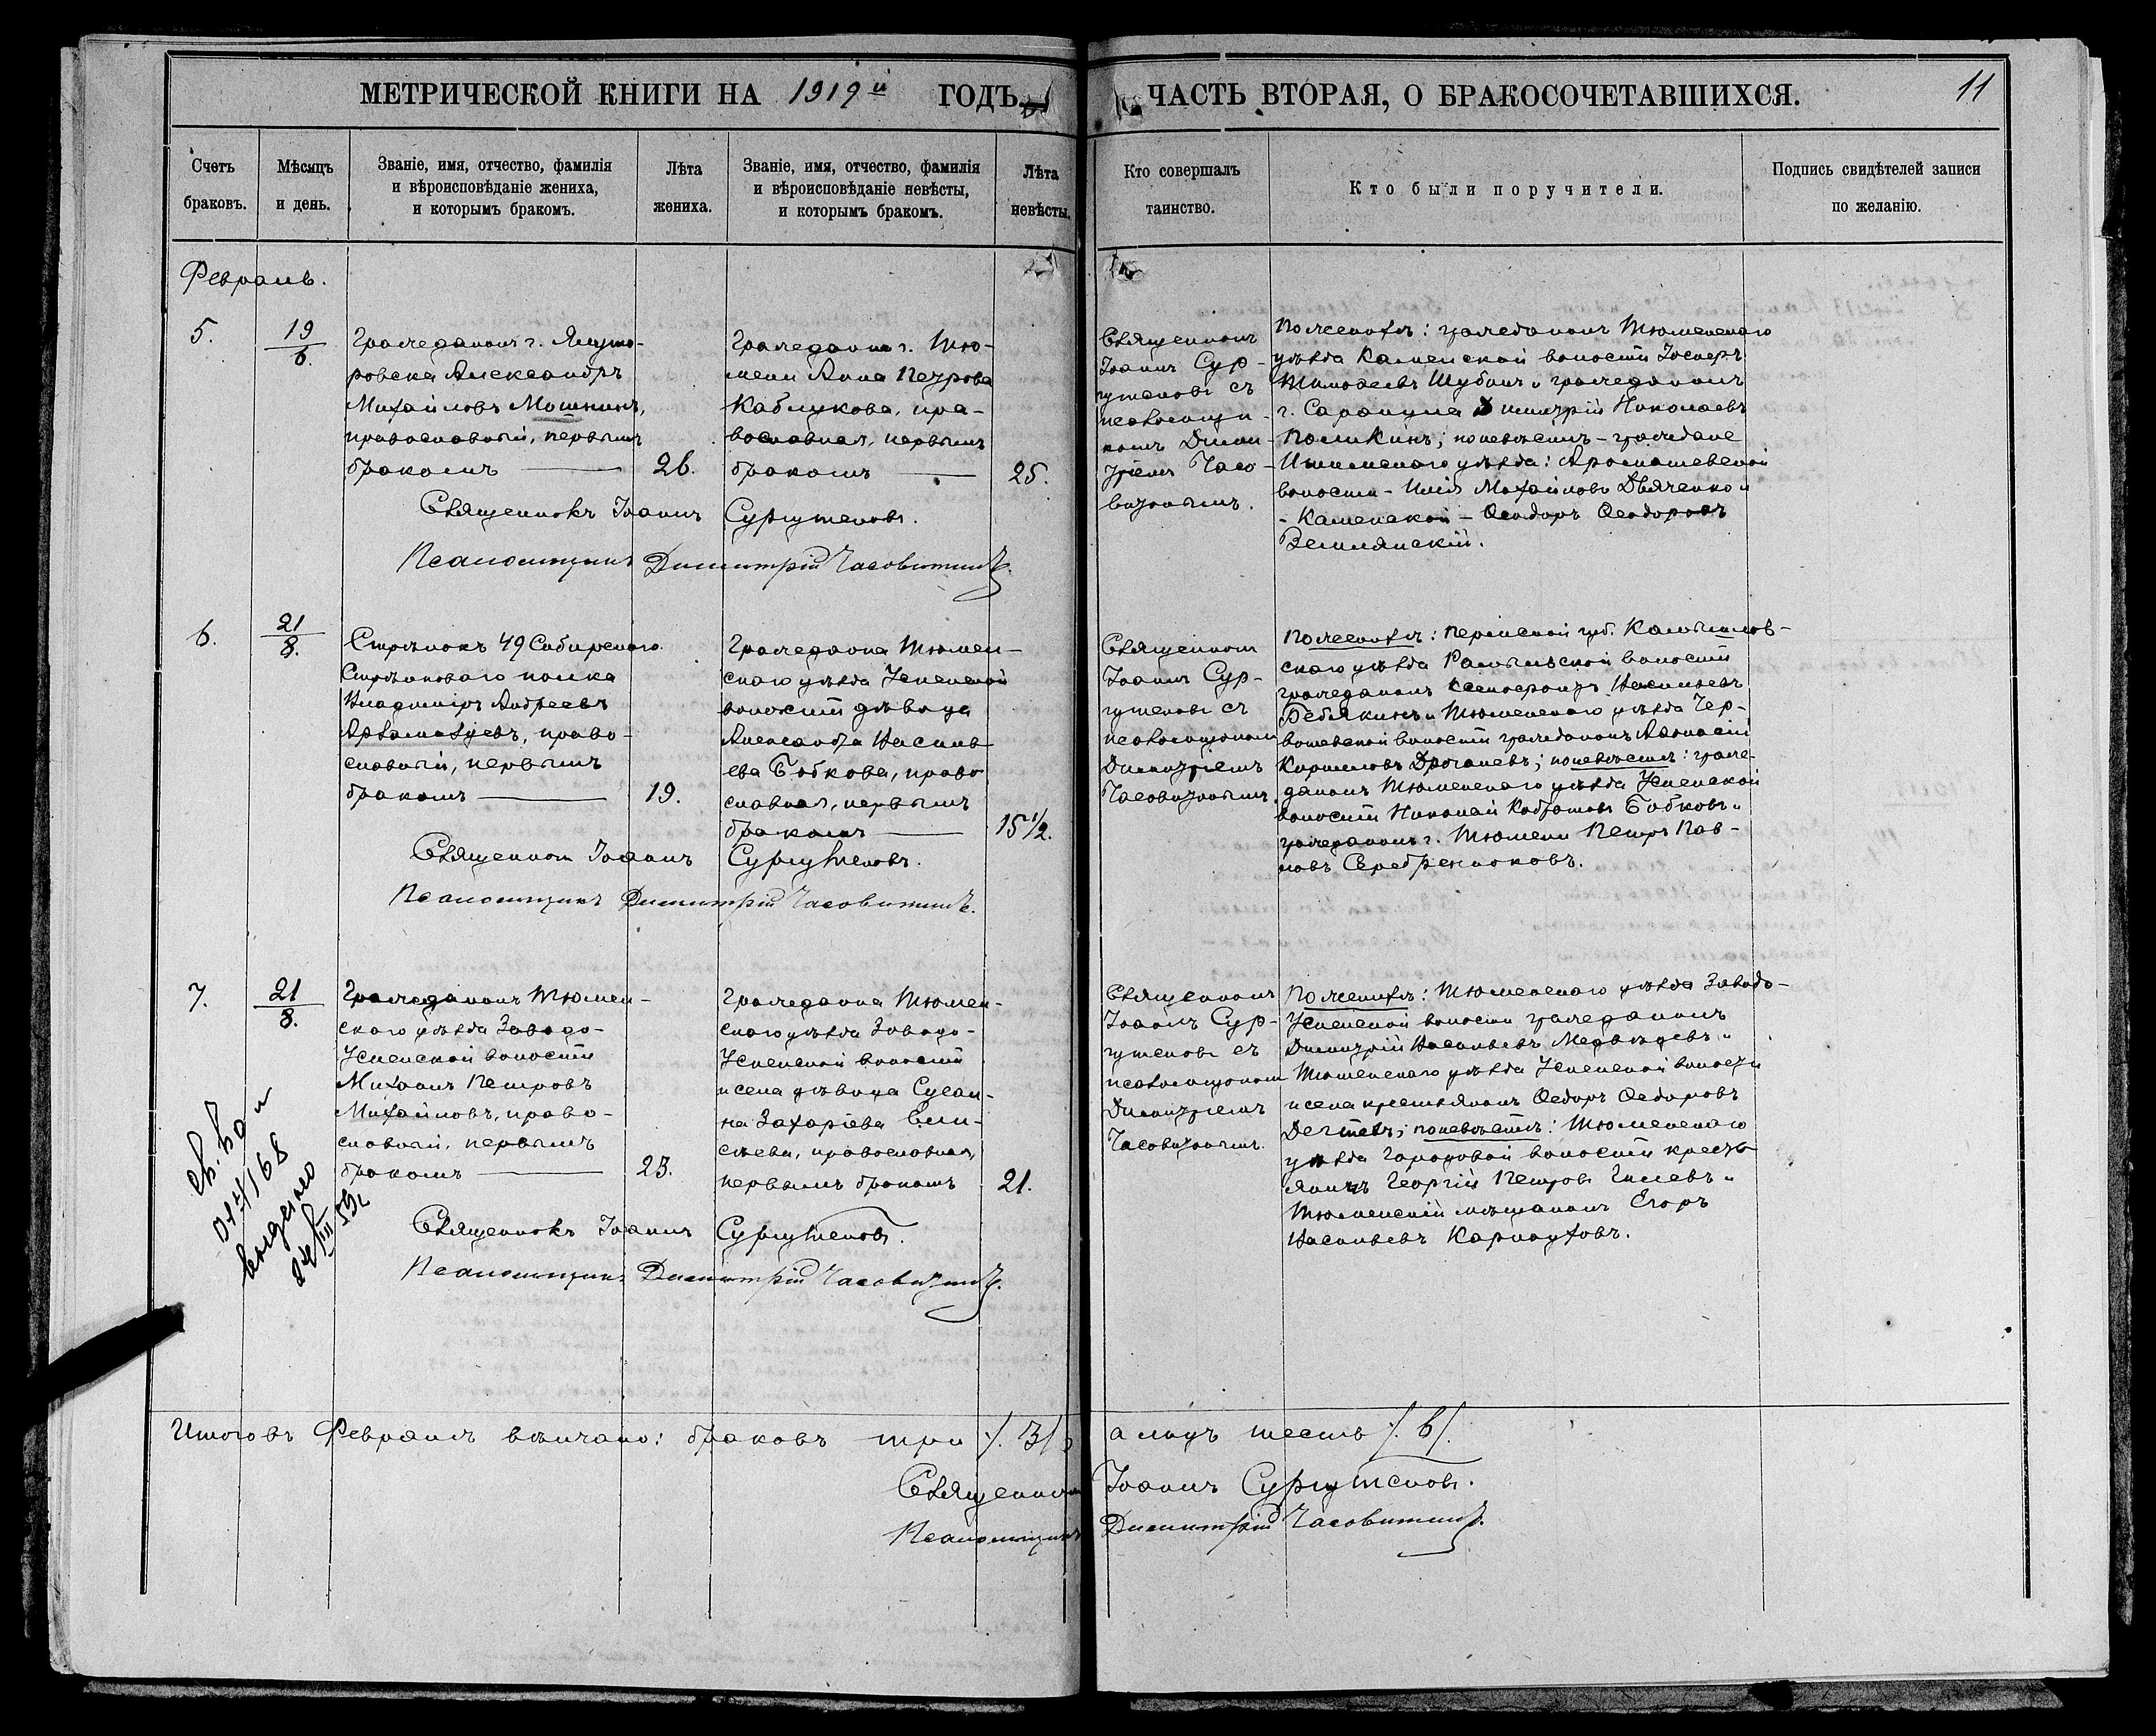 МЕТРИЧЕСКОЙ КНИГИ НА 1919й ГОДЪ
ЧАСТЬ ВТОРАЯ, О БРАКОСОЧЕТАВШИХСЯ.
11
Счетъ браковъ.
Мѣсяцъ и день.
Званіе, имя, отчество, фамилія
и вѣроисповѣданіе жениха,
и которымъ бракомъ.
Лѣта жениха.
Званіе, имя, отчество, фамилія
и вѣроисповѣданіе невѣсты,
и которымъ бракомъ.
Лѣта невѣсты.
Кто совершалъ
таинство.
Кто были поручители.
Подпись свидѣтелей записи
по желанію.
Февраль.
5.
19
6.
Гражданинъ г. Ялуто-
ровска Александръ
Михайловъ Мошкинъ,
православный, первымъ
бракомъ
26.
Гражданка г. Тю-
мени Анна Петрова
Каблукова, пра-
вославная, первымъ
бракомъ
25.
Священникъ
Іоаннъ Сур-
гутсковъ съ
псаломщи-
комъ Дими-
тріемъ Часо-
витинымъ.
По женихѣ: гражданинъ Тюменскаго
уѣзда Каменской волости
Тимофеевъ Шубинъ и гражданинъ
г. Сарапула Димитрій Николаевъ
Поликинъ; по невѣстѣ - граждане
Ишимскаго уѣзда: Аромашевской
волости - Илія Михайловъ Дьяченко и
- Каменской - Ѳеодоръ Ѳеодоровъ
Землянскій.
Священникъ Іоаннъ Сургутсковъ.
Псаломщикъ Димитрій Часовитинъ.
6.
21
8.
Стрѣлокъ 49 Сибирскаго
Стрѣлковаго полка
Владиміръ Андреевъ
православный, первымъ
бракомъ
19.
Гражданка Тюмен-
скаго уѣзда Успенской
волости дѣвица
Александра Василь-
ева Бобкова, право
славная, первымъ
бракомъ
15 1/2.
Священникъ
Іоаннъ Сур-
гутсковъ съ
псаломщикомъ
Димитріемъ
Часовитинымъ.
По женихѣ: Пермской губ. Камышлов-
скаго уѣзда волости
гражданинъ Ксенофонтъ Васильевъ
Бебякинъ и Тюменскаго уѣзда Чер-
вишевской волости гражданинъ Аѳанасій
Кирилловъ по невѣстѣ: граж-
данинъ Тюменскаго уѣзда Успенской
волости Николай Бобковъ и
гражданинъ г. Тюмени Петръ Пав-
ловъ Серебренниковъ.
Священникъ Іоаннъ Сургутсковъ.
Псаломщикъ Димитрій Часовитинъ.
7.
21
8.
Гражданинъ Тюмен-
скаго уѣзда Заводо-
Успенской волости
Михаилъ Петровъ
Михайловъ, право-
славный, первымъ
бракомъ
23.
Гражданка Тюмен-
скаго уѣзда Заводо-
Успенской волости
и села дѣвица Сусан-
на Захаріева Ели-
сѣева, православная,
первымъ бракомъ
21.
Священникъ
Іоаннъ Сур-
гутсковъ съ
псаломщикомъ
Димитріемъ
Часовитинымъ.
По женихѣ: Тюменскаго уѣзда Заводо-
Успенской волости гражданинъ
Димитрій Васильевъ Медвѣдевъ и
Тюменскаго уѣзда Успенской волости
и села крестьянинъ Ѳедоръ Ѳедоровъ
по невѣстѣ: Тюменскаго
уѣзда Городовой волости кресть-
янинъ Георгій Петровъ и
Тюменскій мѣщанинъ Егоръ
Васильевъ Карнауховъ.
Священникъ Іоаннъ Сургутсковъ.
Псаломщикъ Димитрій Часовитинъ.
выдано
Итого въ Февралѣ вѣнчано: браковъ три /.3/.
а лицъ шесть /.6/.
Священникъ Іоаннъ Сургутсковъ.
Псаломщикъ Димитрій Часовитинъ.